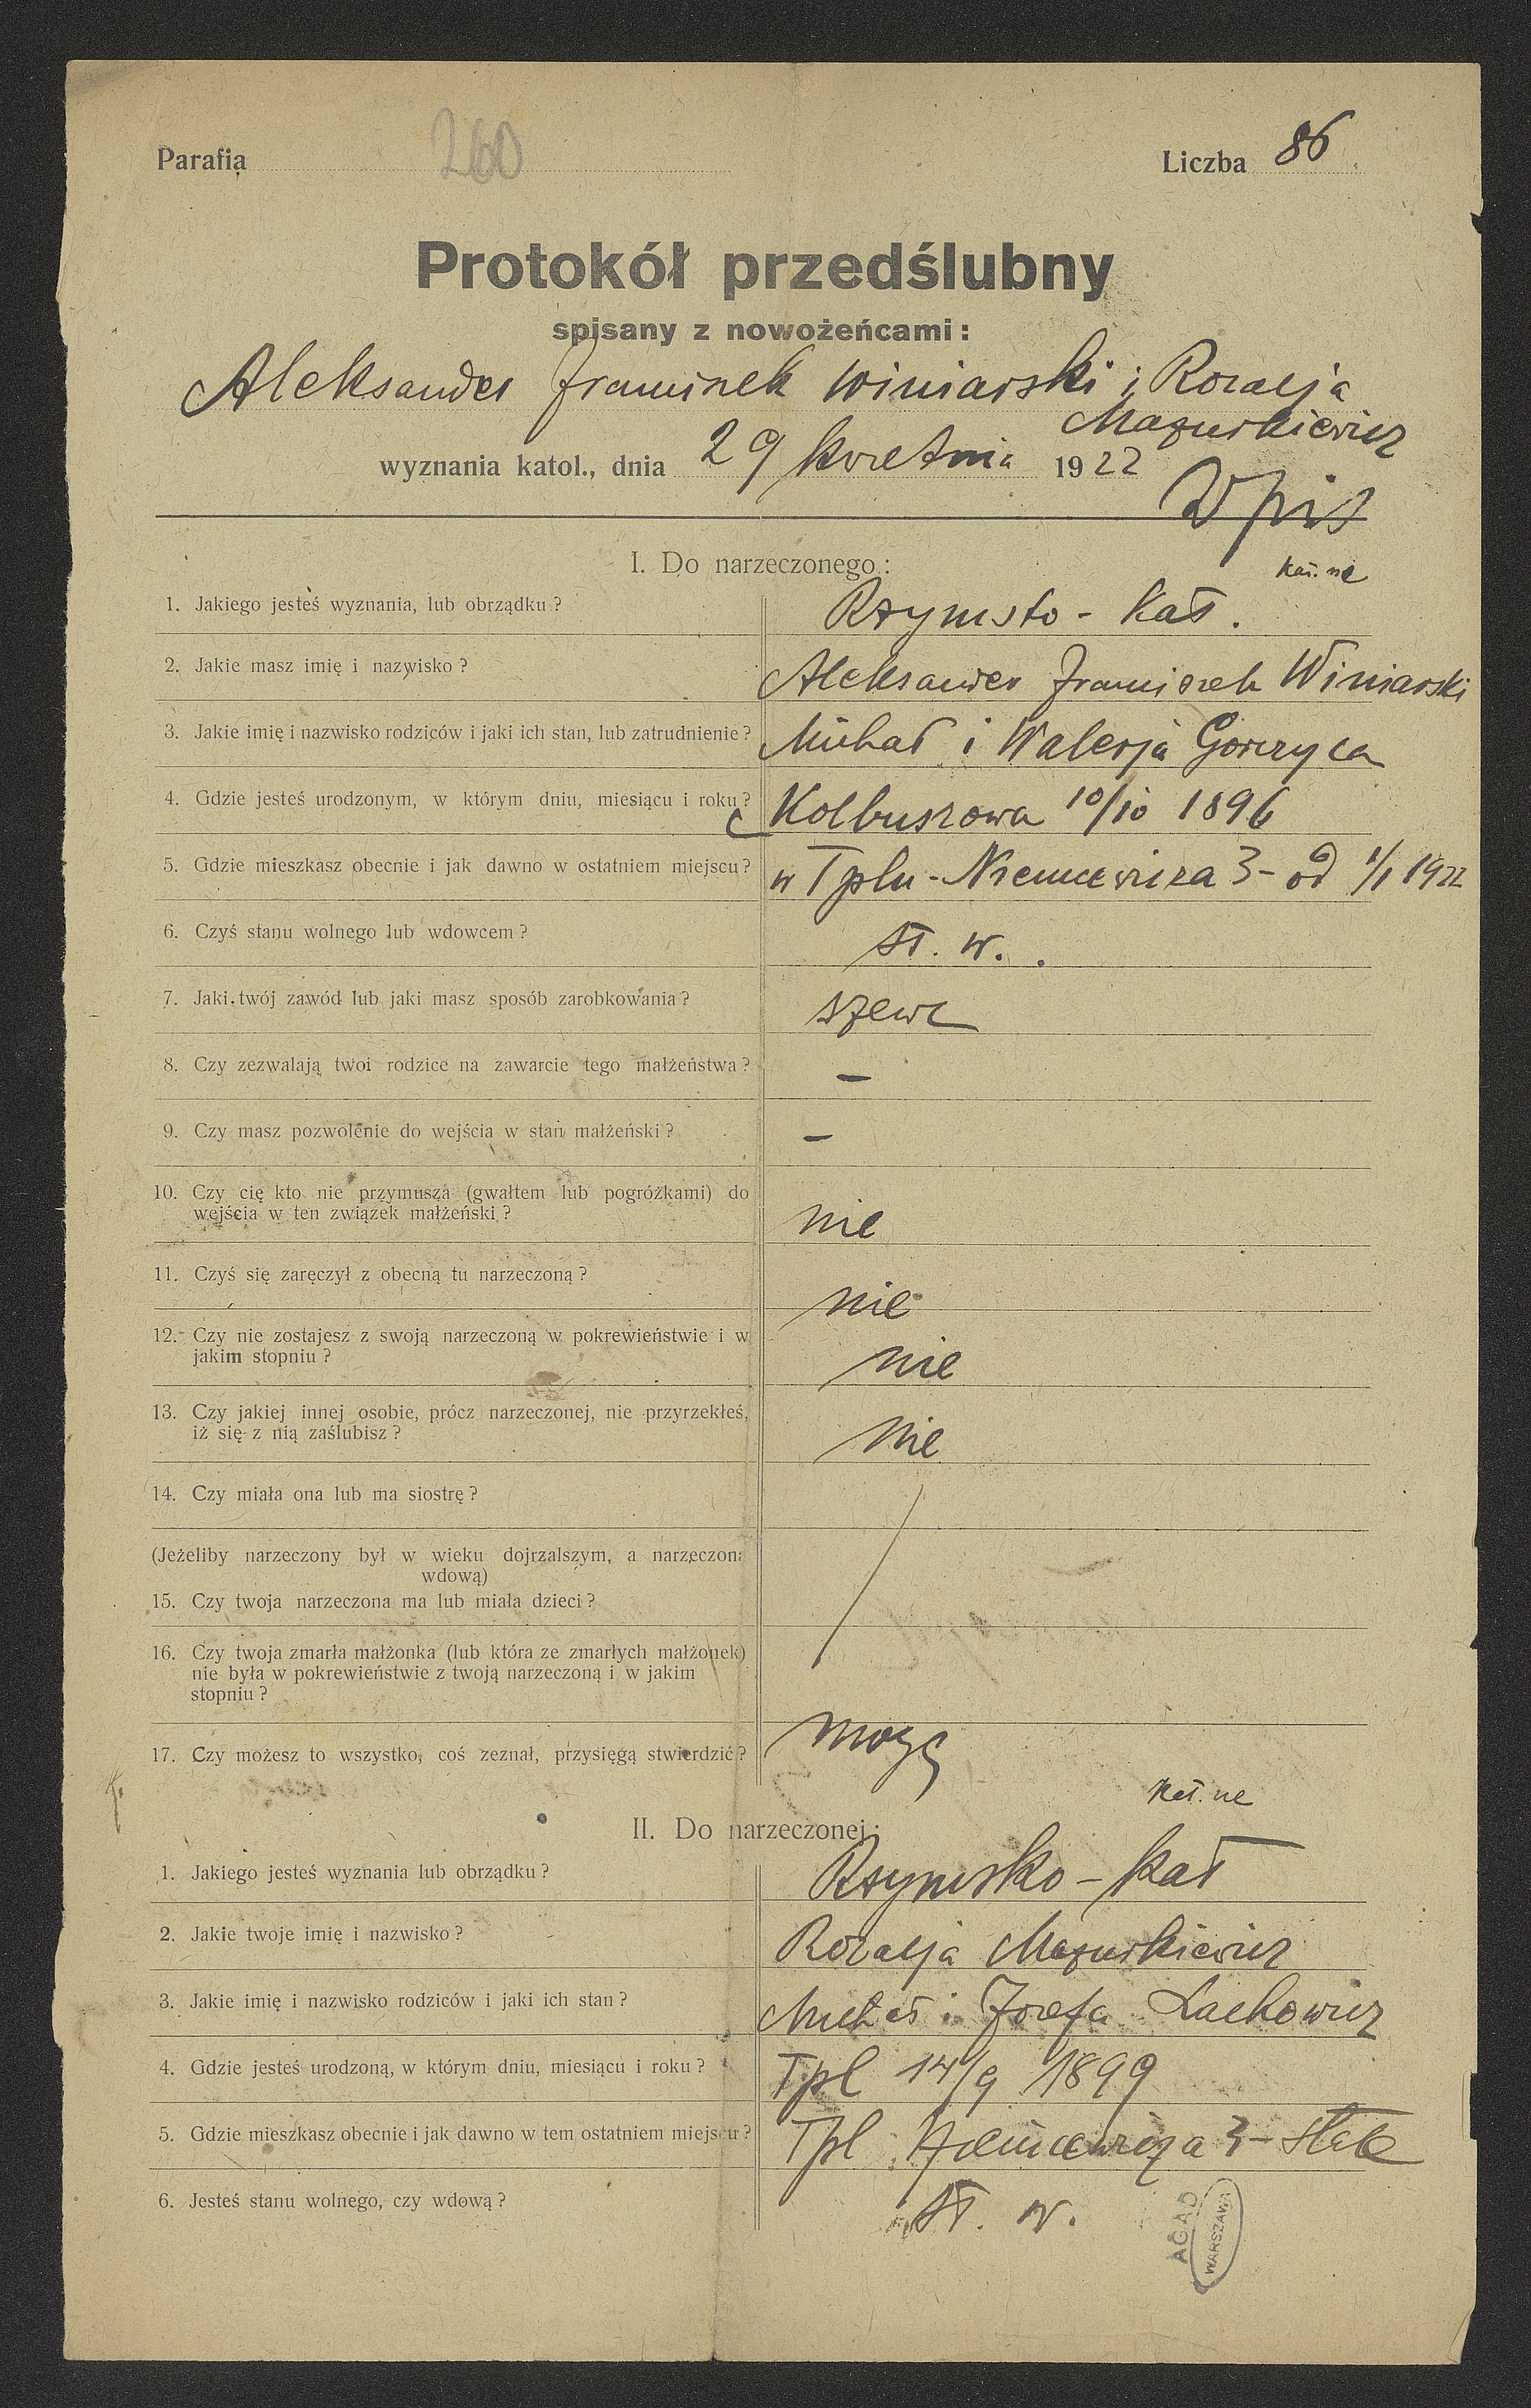 Parafia 260 Liczba 86.
Protokół przedślubny
spisany z nowożeńcami:
Aleksander Franciszek Winiarski i Rozalja
Mazurkiewicz
wyznania katol., dnia 29 kwietnia 1922
Wpis
I. Do narzeczonego:
Kat. ne
1. Jakiego jesteś wyznania, lub obrządku? Rzymsko - Kat.
2. Jakie masz imię i nazwisko? Aleksander Franciszek Winiarski
3. Jakie imię i nazwisko rodziców i jaki ich stan, lub zatrudnienie? Michał i Walerja Gorczyca
4. Gdzie jesteś urodzonym, w którym dniu, miesiącu i roku? Kolbuszowa 10/10 1896
5. Gdzie mieszkasz obecnie i jak dawno w ostatniem miejscu? w Tplu - Niemcewicza 3 - od 1/1 1922
6. Czyś stanu wolnego lub wdowcem? st. w.
7. Jaki twój zawód lub jaki masz sposób zarobkowania? szewc
8. Czy zezwalają twoi rodzice na zawarcie tego małżeństwa? –
9. Czy masz pozwolenie do wejścia w stan małżeński? –
10. Czy cię kto nie przymusza (gwałtem lub pogróżkami) do
wejścia w ten związek małżeński? nie
11. Czyś się zaręczył z obecną tu narzeczoną? nie
12. Czy nie zostajesz z swoją narzeczoną w pokrewieństwie i w
jakim stopniu? nie
13. Czy jakiej innej osobie, prócz narzeczonej, nie przyrzekłeś,
iż się z nią zaślubisz? nie
14. Czy miała ona lub ma siostrę?
(Jeżeliby narzeczony był w wieku dojrzalszym, a narzeczona
wdową)
15. Czy twoja narzeczona ma lub miała dzieci?
16. Czy twoja zmarła małżonka (lub która ze zmarłych małżonek)
nie była w pokrewieństwie z twoją narzeczoną i w jakim
stopniu?
17. Czy możesz to wszystko, coś zeznał, przysięgą stwierdzić? mogę
Kat. ne
II. Do narzeczonej:
1. Jakiego jesteś wyznania lub obrządku? Rzymsko - kat
2. Jakie twoje imię i nazwisko? Rozalja Mazurkiewicz
3. Jakie imię i nazwisko rodziców i jaki ich stan? Michał i Józefa Lachowicz
4. Gdzie jesteś urodzoną, w którym dniu, miesiącu i roku? Tpl 14/9 1899
5. Gdzie mieszkasz obecnie i jak dawno w tem ostatniem miejscu? Tpl Niemcewicza 3 - stale
6. Jesteś stanu wolnego, czy wdową? st. w.
AGAD
WARSZAWA